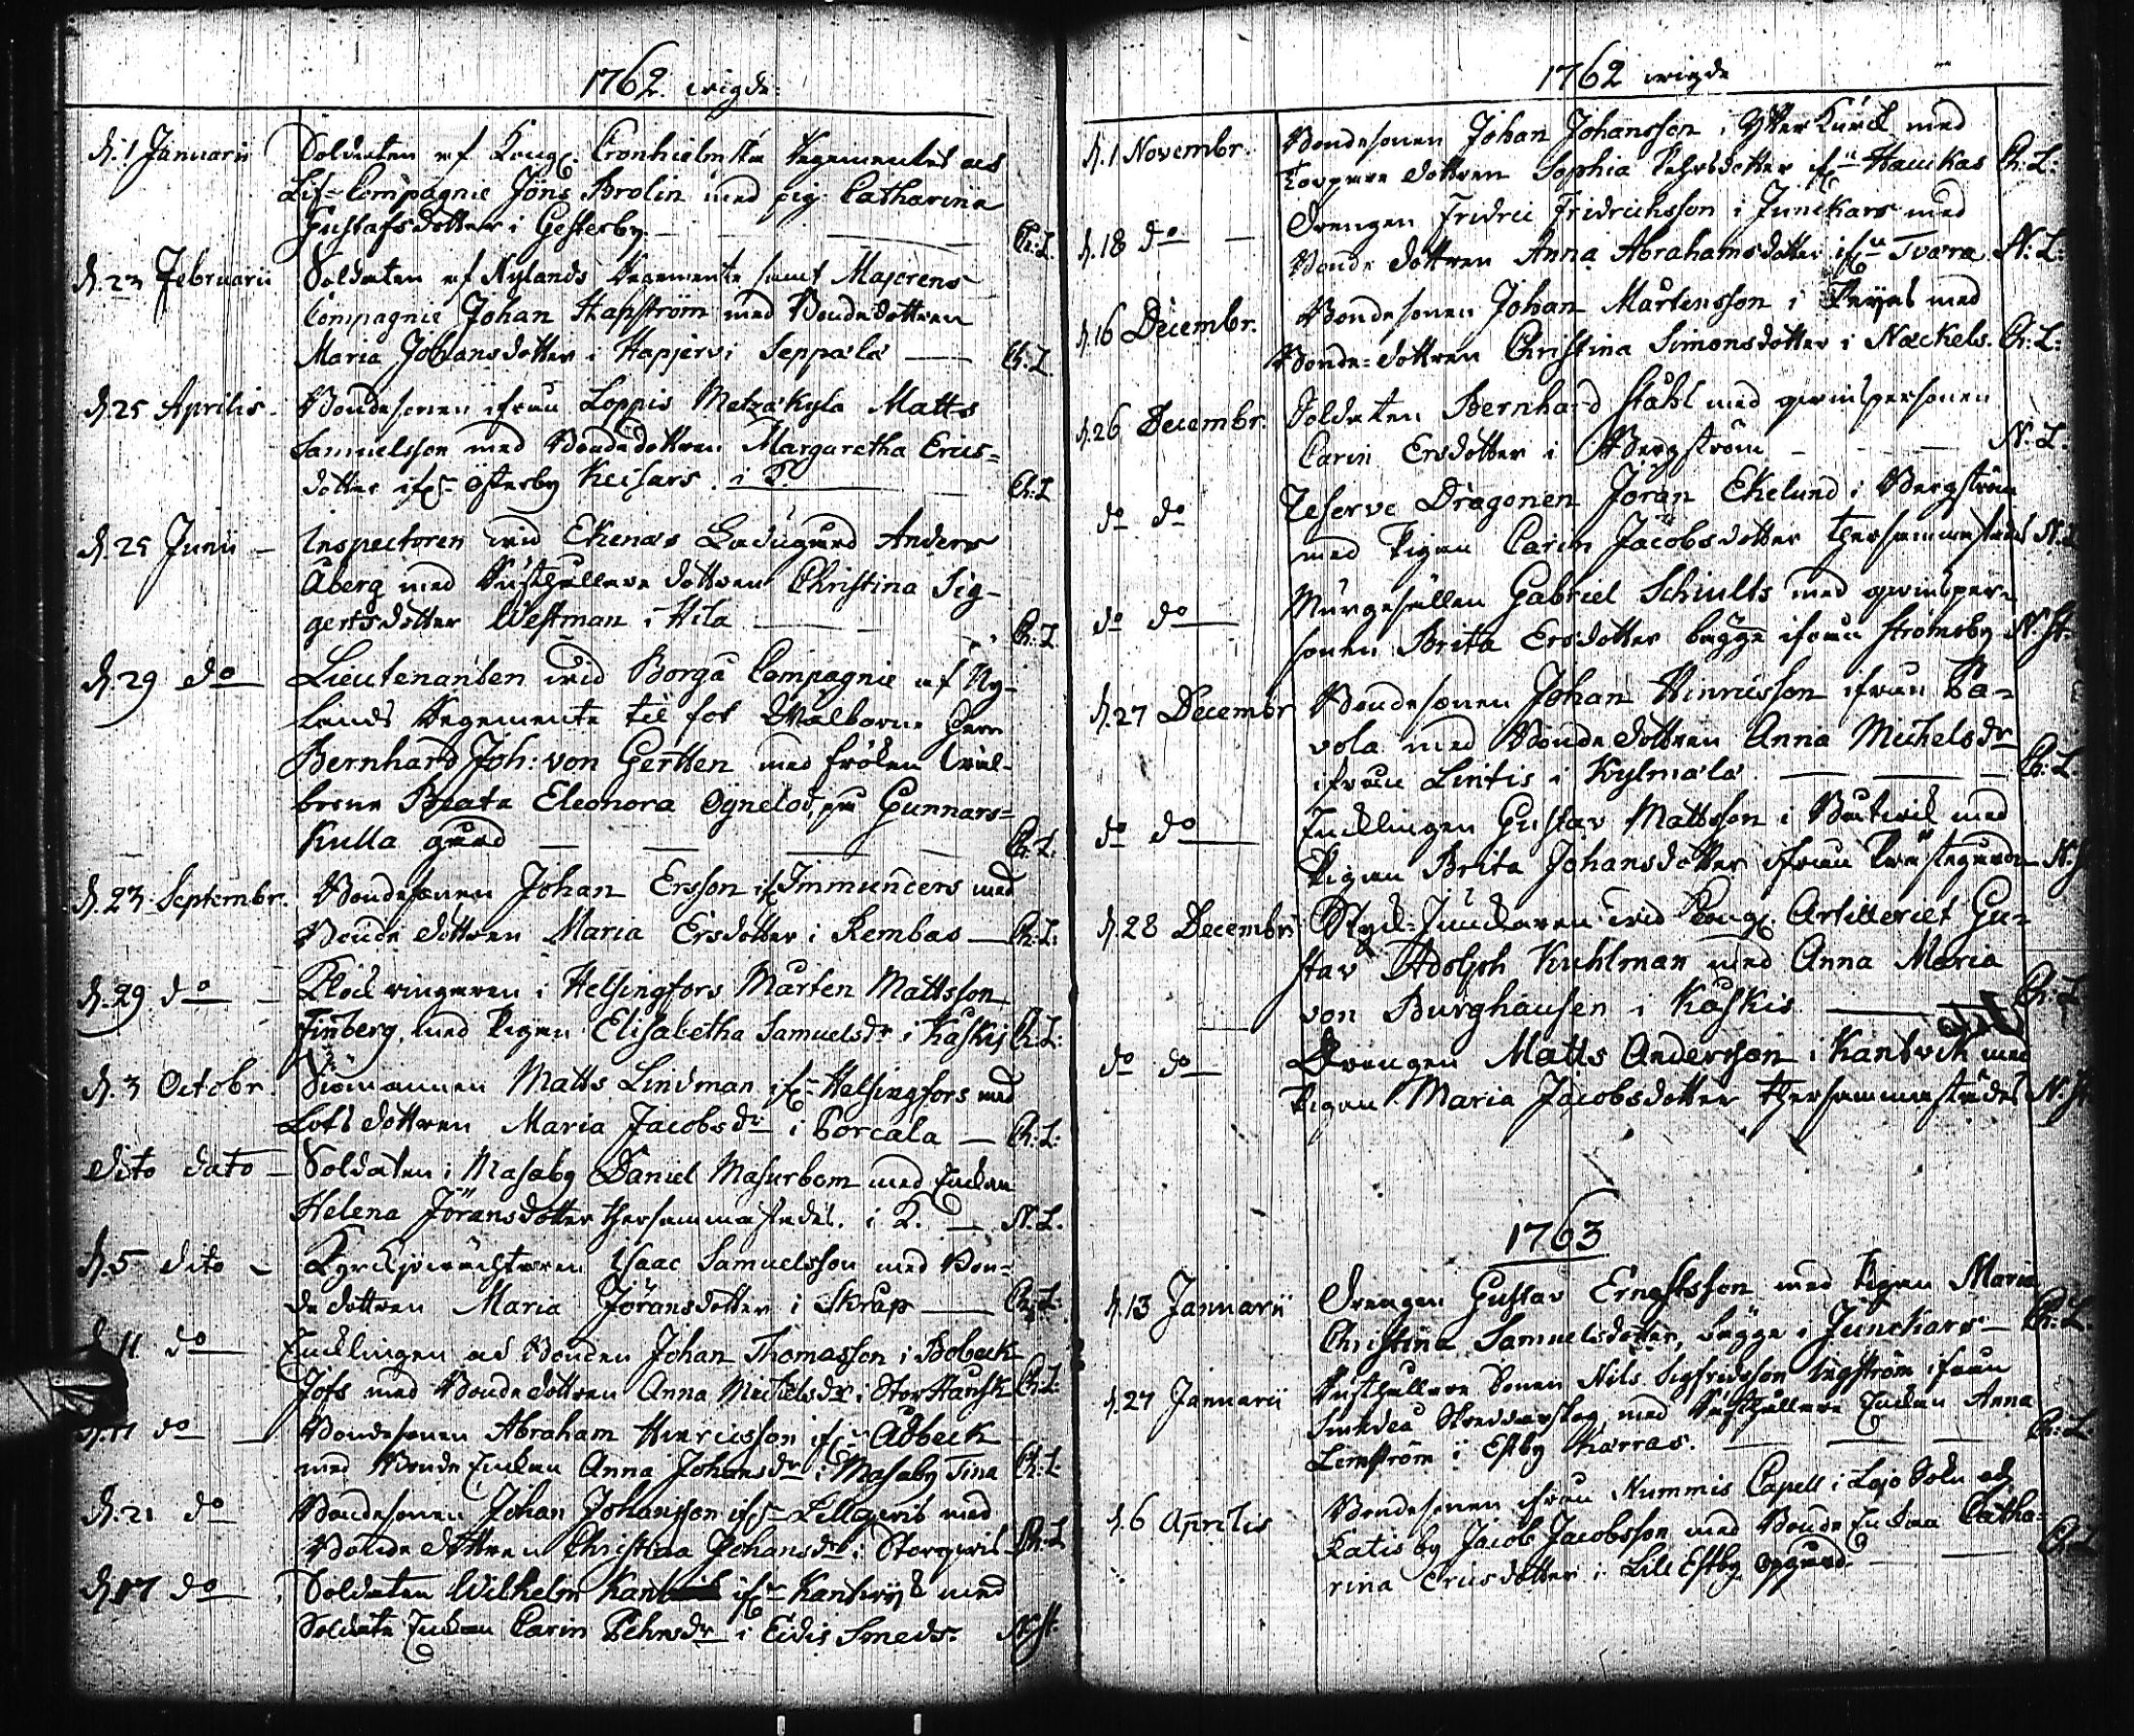 1762. wigde.
d. 1 Januarii Soldaten af Kongl. Cronhielmska Regementet och
Lif-Compagnie Jöns Brolin med pig. Catharina
Gustafsdotter i Gesterby. Ch: L.
d. 23 Februarii Soldaten af Nylands Regemente samt Majorens
Compagnie Johan Hapström med Bondedottren
Maria Johansdotter i Hapjervi Seppälä Ch. L.
d. 25 Aprilis. Bondesonen ifrån Loppis Metzäkylä Matts
Samuelsson med Bondedottren Margaretha Erics=
dotter ifr. Österby Keisars. i K. Ch: L
d. 25 Junii Inspectoren wid Ekenäs Ladugård Anders
Åberg med Rusthållare dottren Christina Sig-
gertsdotter Westman i Hila Ch: L
d. 29 do Lieutenanten wid Borgå Compagnie af Ny-
lands Regemente til fot Wälborne Herr
Bernhard Joh: von Gertten med Fröken Wäl-
borne Beata Eleonora Ögnelod, på Gunnars=
kulla gård Ch: L:
d. 23 Septembr. Bondesonen Johan Ersson if. Immunders med
Bonde dottren Maria Ersdotter i Rembas Ch: L:
d. 29 do Klockringaren i Helsingfors Mårten Mattsson
Finberg, med Pigan Elisabetha Samuelsdr i Kaskis Ch: L:
d. 3 Octobr. Siömannen Matts Lindman ifr. Helsingfors med
Lots dottren Maria Jacobsdr i Porcala Ch: L:
Dito dato Soldaten i Masaby Daniel Masurbom med Enckan
Helena Jöransdotter thersammastädes. i K. N. L.
d. 5 dito Kyrckjowächtaren Isaac Samuelsson med Bon=
de dottren Maria Jöransdotter i Skrap Ch: L:
d. 11. do Encklingen och Bonden Johan Thomasson i Bobeck
Jofs med Bonde dottren Anna Michelsdr i Stor Hausk Ch: L:
d. 17 do Bondesonen Abraham Hinricsson ifr. Adbeck
med Bonde Enckan Anna Johansdr i Masaby Tina Ch: L
d. 21 do Bondesonen Johan Johansson ifr. Lillqwis med
Bonde dottren Christina Johansdr i Storqwis Ch: L
d. 17 do Soldaten Wilhelm ifr. Kantwijk med
Soldate Enckan Carin Pehrsdr i Eidis Smeds. N. St.
1762 wigde
d. 1 Novembr. Bondesonen Johan Johansson i Ytter Kurck med
Torpare dottren Sophia Pehrsdotter ifr. Hauckas Ch: L:
d. 18 do Drengen Fridric Fridrichsson i Junckars med
Bonde dottren Anna Abrahamsdotter ifr. Tvara N: L:
d. 16 Decembr. Bondesonen Johan Mårtensson i med
Bonde=dottren Christina Simonsdotter i Nackels. Ch: L:
d. 26 Decembr. Soldaten Bernhard Ståhl med qwinspersonen
Carin Ersdotter i Bergström N: L.
do do Reserve Dragonen Jöran Ekelund i Bergström
med Pigan Carin Jacobsdotter thersammastäds N: L
do do Murgesällen Gabriel Schults med qwinsper-
sonen Brita Ersdotter bägge ifrån Strömsby N. St.
d. 27 Decembr Bondesonen Johan Hinricsson ifrån Pa=
vola med Bonde dottren Anna Michelsdr
ifrån Lintis i Kylmälä Ch: L.
do do Encklingen Gustav Mattsson i Båtwik med
Pigan Brita Johansdotter ifrån Prästegården N. St
d. 28 Decembr: Styck-Junckaren wid Kongl. Artilleriet Gu=
stav Adolph Kuhlman med Anna Maria
von Burghausen i Kaskis Ch: L
do do Drengen Matts Andersson i Kantvik med
Pigan Maria Jacobsdotter thersammastädes N. St
1763
d. 13 Januarii Drengen Gustav Ernstsson med Pigan Maria
Christina Samuelsdotter, bägge i Junckars Ch: L.
d. 27 Januarii Rusthållare Sonen Nils Sigfridsson Ingström ifrån
Sundeå Skreddarskog, med Rusthållare Enckan Anna
Lemström i Estby Karras. Ch: L.
d. 6 Aprilis Bondesonen ifrån Nummis Capell i Lojo Sokn och
Katisby Jacob Jacobsson med Bonde Enckan Catha=
rina Ericsdotter i Lill Estby Opgård. Ch: L